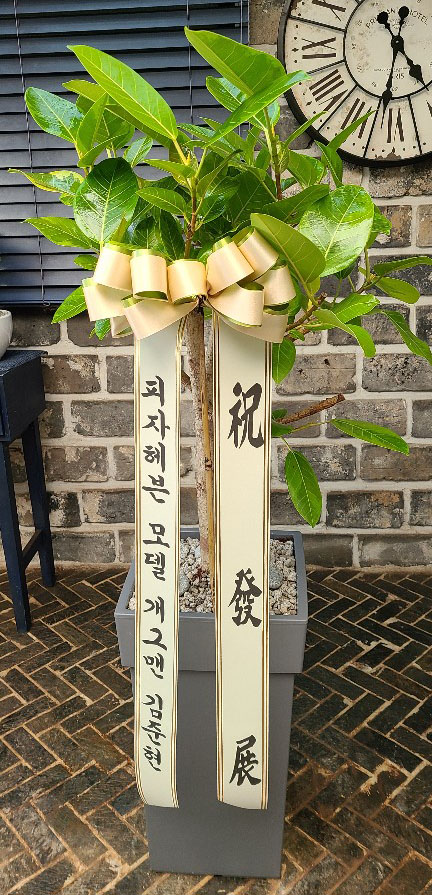 피자헤븐 모델 개그맨 김준현
祝發展